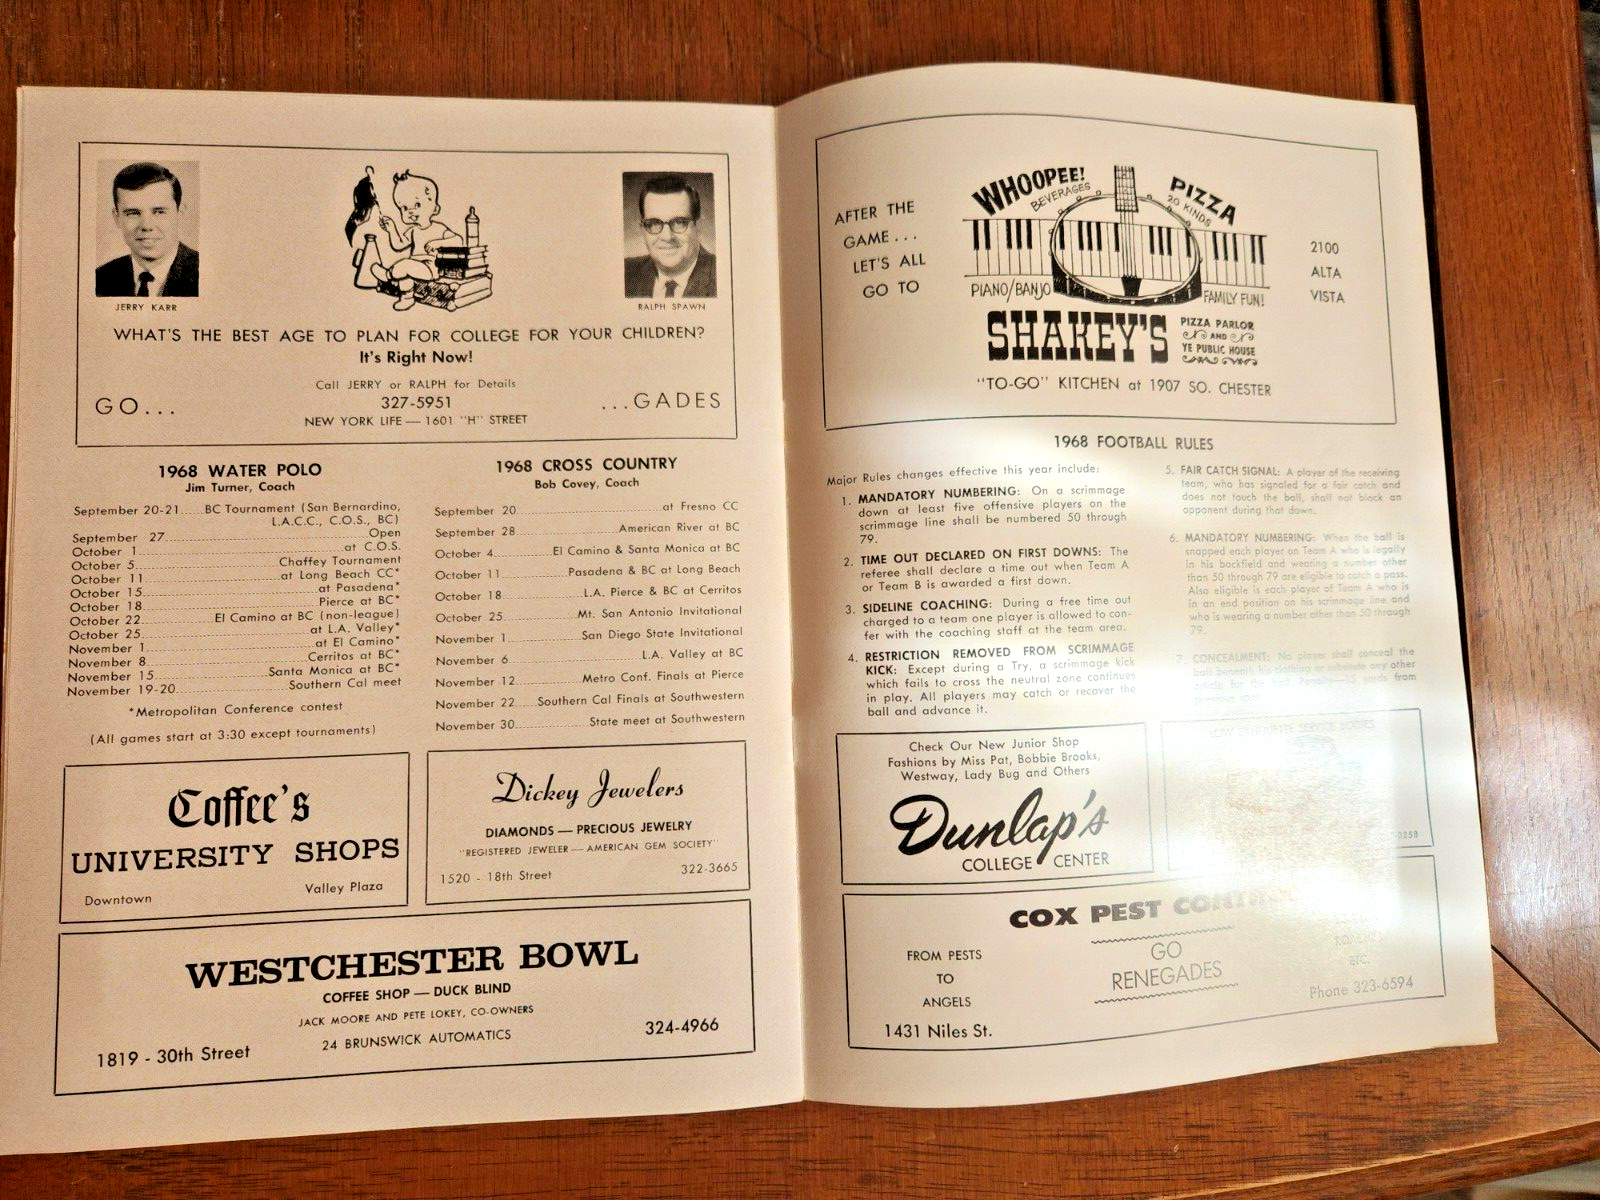 JERRY KARR
RALPH SPAWN
WHAT'S THE BEST AGE TO PLAN FOR COLLEGE FOR YOUR CHILDREN?
It's Right Now!
Call JERRY or RALPH for Details
GO... 327-5951 ...GADES
NEW YORK LIFE — 1601 "H" STREET
1968 WATER POLO
Jim Turner, Coach
September 20-21 BC Tournament (San Bernardino,
L.A.C.C., C.O.S., BC)
September 27 Open
October 1 at C.O.S.
October 5 Chaffey Tournament
October 11 at Long Beach CC*
October 15 at Pasadena*
October 18 Pierce at BC*
October 22 El Camino at BC (non-league)
October 25 at L.A. Valley*
November 1 at El Camino*
November 8 Cerritos at BC*
November 15 Santa Monica at BC*
November 19-20 Southern Cal meet
*Metropolitan Conference contest
(All games start at 3:30 except tournaments)
1968 CROSS COUNTRY
Bob Covey, Coach
September 20 at Fresno CC
September 28 American River at BC
October 4 El Camino & Santa Monica at BC
October 11 Pasadena & BC at Long Beach
October 18 L.A. Pierce & BC at Cerritos
October 25 Mt. San Antonio Invitational
November 1 San Diego State Invitational
November 6 L.A. Valley at BC
November 12 Metro Conf. Finals at Pierce
November 22 Southern Cal Finals at Southwestern
November 30 State meet at Southwestern
Coffee's
UNIVERSITY SHOPS
Downtown Valley Plaza
Dickey Jewelers
DIAMONDS — PRECIOUS JEWELRY
"REGISTERED JEWELER — AMERICAN GEM SOCIETY"
1520 - 18th Street 322-3665
WESTCHESTER BOWL
COFFEE SHOP — DUCK BLIND
JACK MOORE AND PETE LOKEY, CO-OWNERS
24 BRUNSWICK AUTOMATICS
1819 - 30th Street 324-4966
AFTER THE
GAME...
LET'S ALL
GO TO
WHOOPEE!
BEVERAGES
PIZZA
20 KINDS
PIANO/BANJO
FAMILY FUN!
2100
ALTA
VISTA
SHAKEY'S
PIZZA PARLOR
AND
YE PUBLIC HOUSE
"TO-GO" KITCHEN at 1907 SO. CHESTER
1968 FOOTBALL RULES
Major Rules changes effective this year include:
1. MANDATORY NUMBERING: On a scrimmage
down at least five offensive players on the
scrimmage line shall be numbered 50 through
79.
2. TIME OUT DECLARED ON FIRST DOWNS: The
referee shall declare a time out when Team A
or Team B is awarded a first down.
3. SIDELINE COACHING: During a free time out
charged to a team one player is allowed to con-
fer with the coaching staff at the team area.
4. RESTRICTION REMOVED FROM SCRIMMAGE
KICK: Except during a Try, a scrimmage kick
which fails to cross the neutral zone continues
in play. All players may catch or recover the
ball and advance it.
5. FAIR CATCH SIGNAL: A player of the receiving
team, who has signaled for a fair catch and
does not touch the ball, shall not block an
opponent during that down.
6. MANDATORY NUMBERING: When the ball is
snapped each player on Team A who is legally
in his backfield and wearing a number other
than 50 through 79 are eligible to catch a pass.
Also eligible is each player of Team A who is
in an end position on his scrimmage line and
who is wearing a number other than 50 through
79.
7. CONCEALMENT: No player shall conceal the
ball beneath his clothing or substitute any other
article for the ball. Penalty—15 yards from
Check Our New Junior Shop
Fashions by Miss Pat, Bobbie Brooks,
Westway, Lady Bug and Others
Dunlap's
COLLEGE CENTER
0258
COX PEST
FROM PESTS
TO
ANGELS
GO
RENEGADES
ETC.
1431 Niles St.
Phone 323-6594